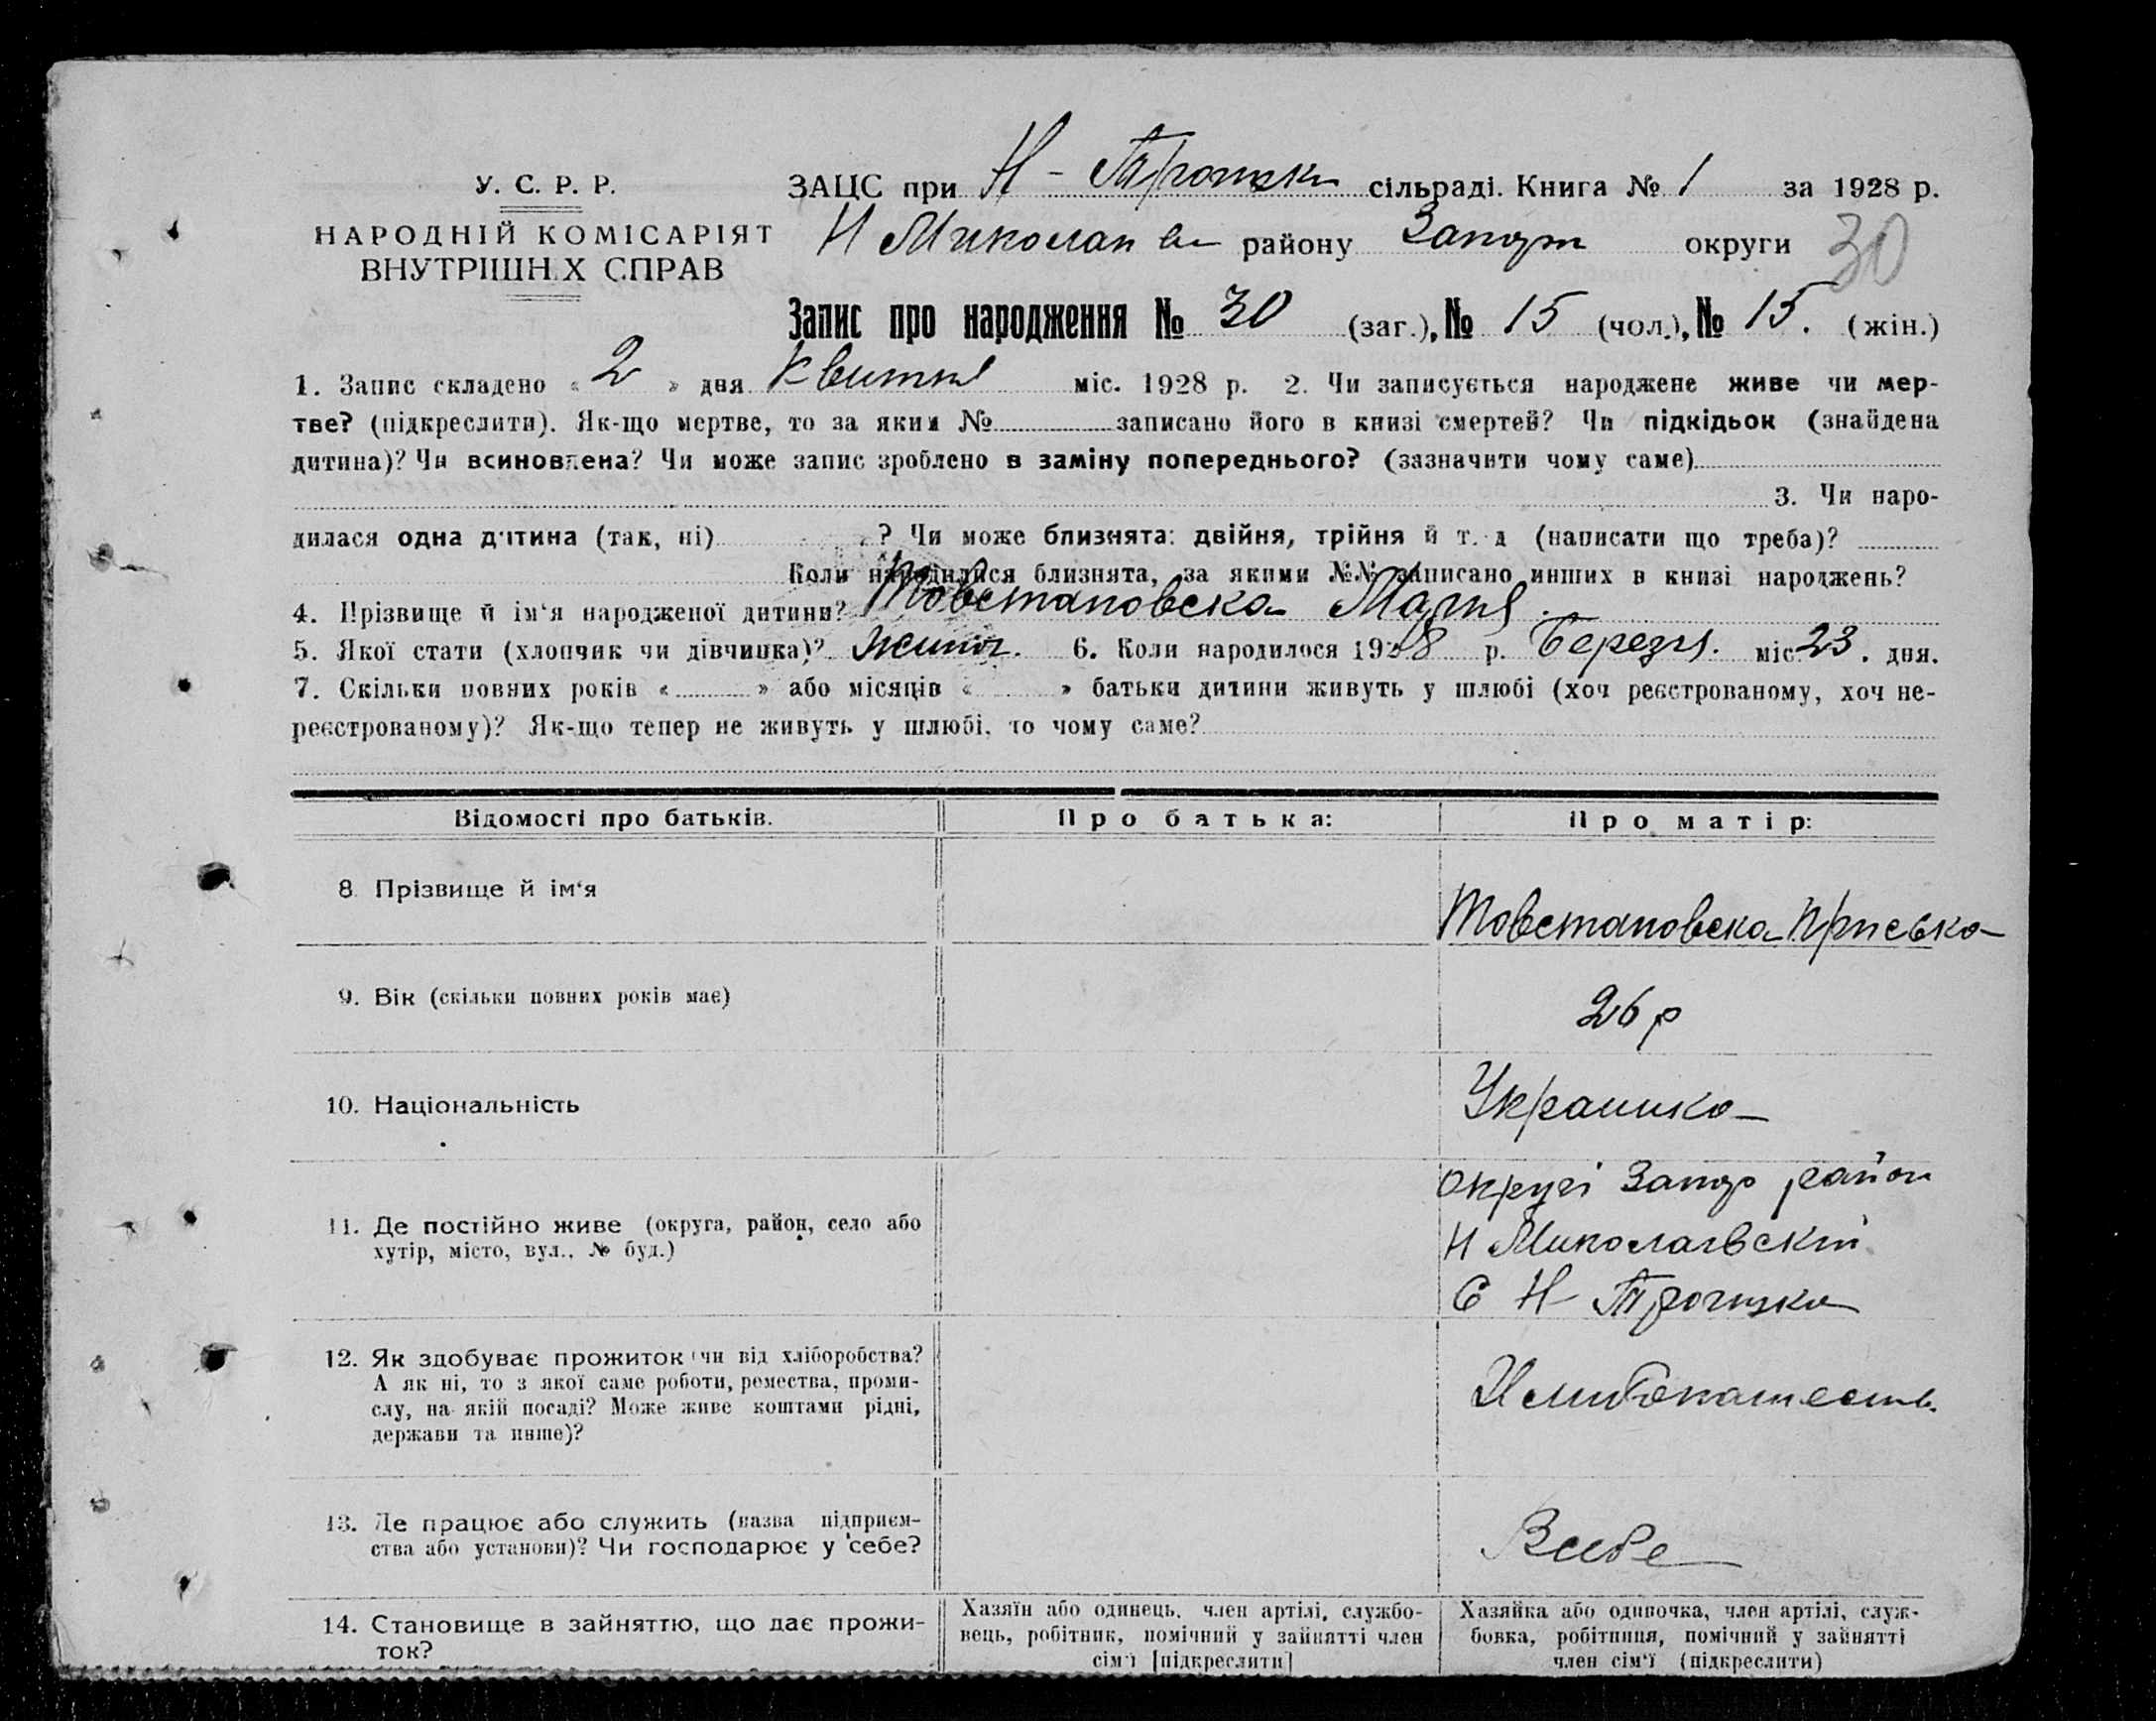 У. С. Р. Р.
НАРОДНІЙ КОМІСАРІЯТ
ВНУТРІШН.Х СПРАВ
ЗАЦС при Н - Троицки сільраді. Книга № 1 за 1928 р.
Н Миколаив району Запор округи 30
Запис про народження № 30 (заг.), № 15 (чол.), № 15. (жін.)
1. Запис складено « 2 » дня Квитня міс. 1928 р. 2. Чи записується народжене живе чи мер-
тве? (підкреслити). Як-що мертве, то за яким № записано його в книзі смертей? Чи підкідьок (знайдена
дитина)? Чи всиновлена? Чи може запис зроблено в заміну попереднього? (зазначити чому саме)
3. Чи наро-
дилася одна дитина (так, ні) ? Чи може близнята: двійня, трійня й т. д (написати що треба)?
Коли народилися близнята, за якими №№ записано инших в книзі народжень?
4. Прізвище й ім‘я народженої дитини? Товстановска Мария.
5. Якої стати (хлопчик чи дівчинка)? жиноч. 6. Коли народилося 1928 р. Березня. міс. 23. дня.
7. Скільки повних років « » або місяців « » батьки дитини живуть у шлюбі (хоч реєстрованому, хоч не-
реєстрованому)? Як-що тепер не живуть у шлюбі, то чому саме?
Відомості про батьків. Про батька: Про матір:
8 Прізвище й ім‘я
Товстановска Приська
9. Вік (скільки повних років має)
26 р
10. Національність
Украинка
11. Де постійно живе (округа, район, село або
хутір, місто, вул., № буд.)
округі Запор район
Н Миколаевский
С Н-Троицка
12. Як здобуває прожиток чи від хліборобства?
А як ні, то з якої саме роботи, ремества, проми-
слу, на якій посаді? Може живе коштами рідні,
держави та инше)?
13. Де працює або служить (назва підприєм-
ства або установи)? Чи господарює у себе?
Всибе
14. Становище в зайняттю, що дає прожи-
ток?
Хазяїн або одинець, член артілі, службо-
вець, робітник, помічний у зайнятті член
сім‘ї [підкреслити]
Хазяйка або одиночка, член артілі, служ-
бовка, робітниця, помічний у зайнятті
член сім‘ї (підкреслити)